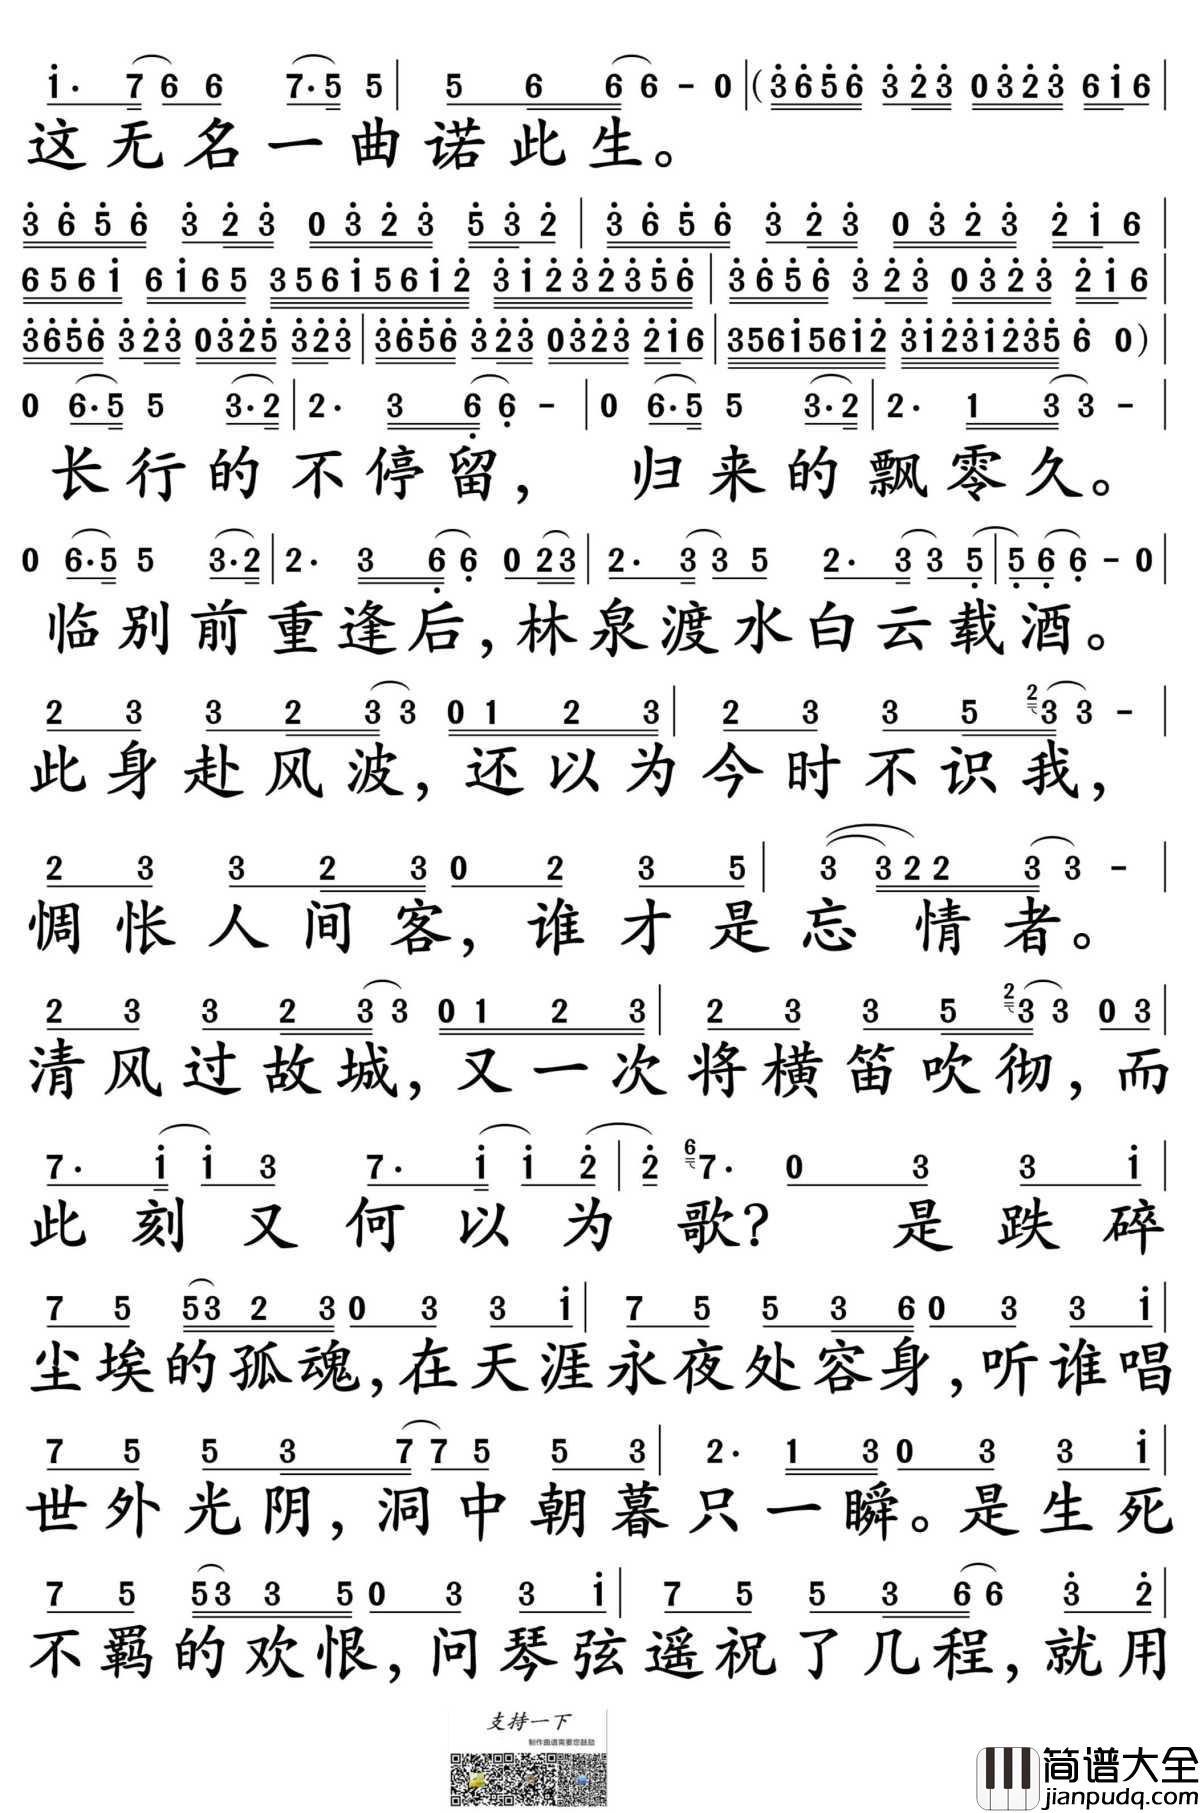 i· 7 6 6 7·5 5 | 5 6 6 6 - 0 |(3656 323 0323 6i6 |
这无名一曲诺此生。
3656 323 0323 532 | 3656 323 0323 2i6 |
656i 6i65 356i56i2 3i232356 | 3656 323 0323 2i6 |
3656 323 0325 323 | 3656 323 0323 2i6 | 356i56i2 3i23i235 6 0)|
0 6·5 5 3·2 | 2· 3 6 6 - | 0 6·5 5 3·2 | 2· 1 3 3 - |
长行的不停留， 归来的飘零久。
0 6·5 5 3·2 | 2· 3 6 6 0 23 | 2· 3 3 5 2· 3 3 5 | 5 6 6 - 0 |
临别前重逢后，林泉渡水白云载酒。
2 3 3 2 3 3 0 1 2 3 | 2 3 3 5 2 3 3 - |
此身赴风波，还以为今时不识我，
2 3 3 2 3 0 2 3 5 | 3 3 2 2 3 3 - |
惆怅人间客，谁才是忘情者。
2 3 3 2 3 3 0 1 2 3 | 2 3 3 5 2 3 3 0 3 |
清风过故城，又一次将横笛吹彻，而
7· i i 3 7· i i 2 | 2 6 7· 0 3 3 i |
此刻又何以为歌？ 是跌碎
7 5 53 2 3 0 3 3 i | 7 5 5 3 6 0 3 3 i |
尘埃的孤魂，在天涯永夜处容身，听谁唱
7 5 5 3 7 7 5 5 3 | 2· 1 3 0 3 3 i |
世外光阴，洞中朝暮只一瞬。是生死
7 5 53 3 5 0 3 3 i | 7 5 5 3 6 6 3 2 |
不羁的欢恨，问琴弦遥祝了几程，就用
支持一下
制作曲谱需要您鼓励
简谱大全
jianpudq.com